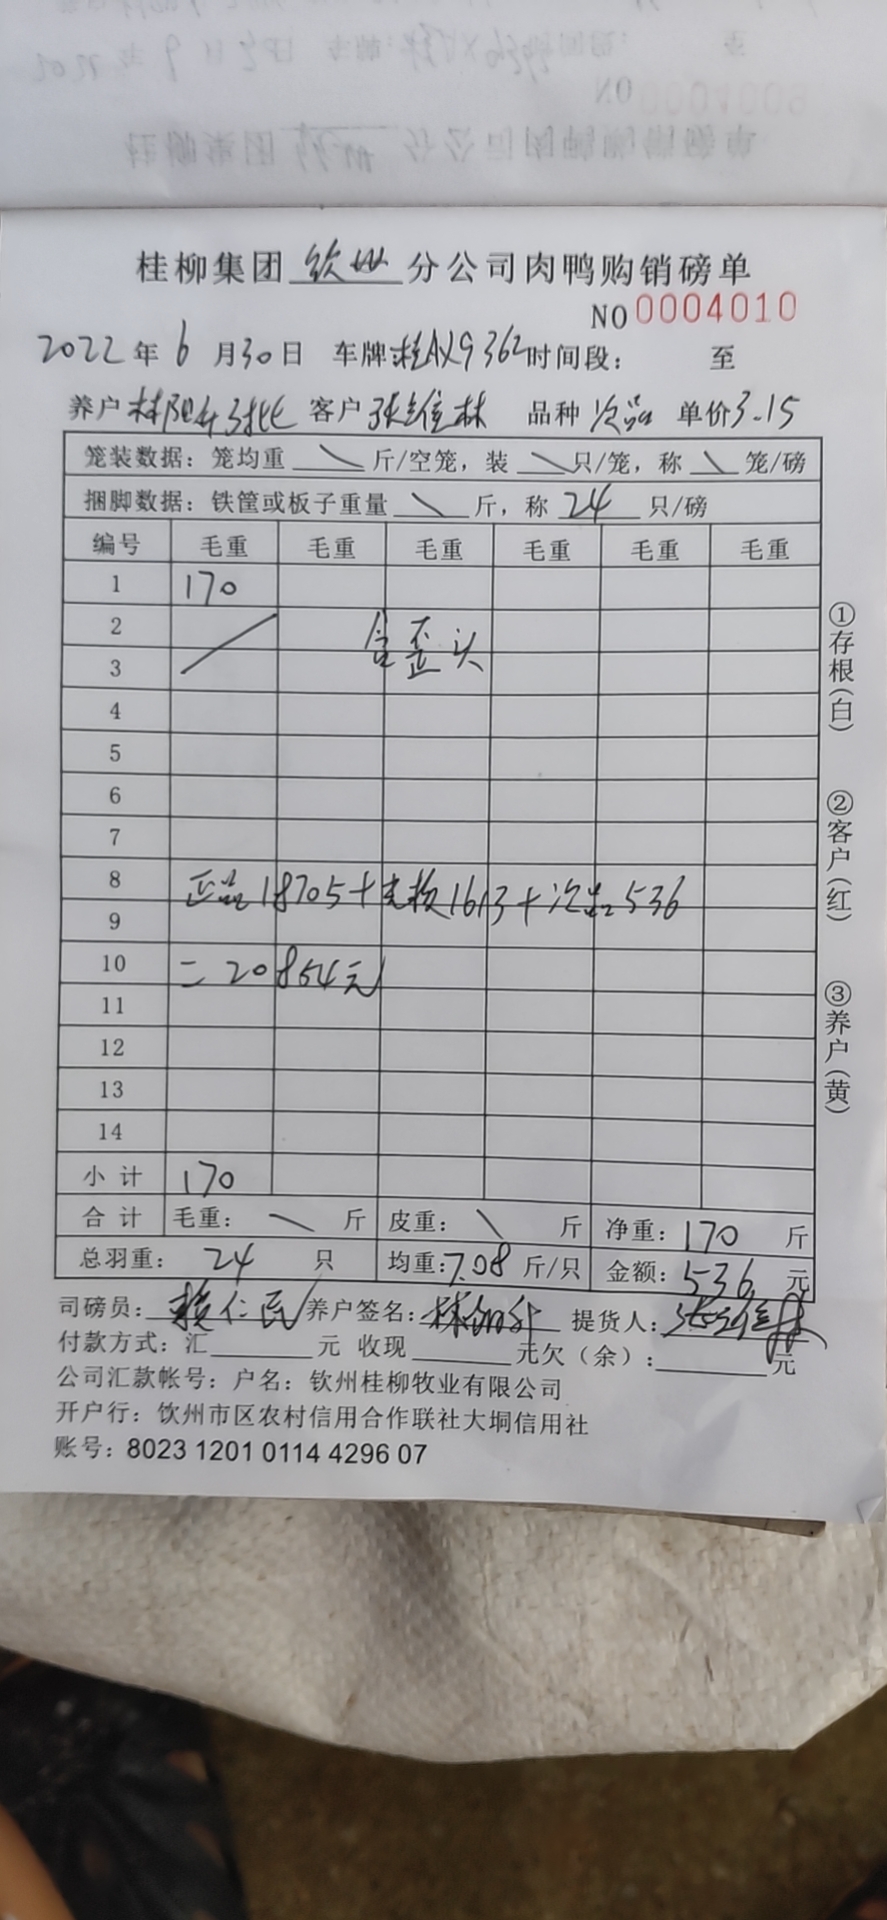 桂柳集团 钦州 分公司肉鸭购销磅单
NO 0004010
2022 年 6 月 30 日 车牌: 桂AX9362 时间段: 至
养户 林阳升3批 客户 张维林 品种 次品 单价 3.15
笼装数据: 笼均重 \ 斤/空笼, 装 \ 只/笼, 称 \ 笼/磅
捆脚数据: 铁筐或板子重量 \ 斤, 称 24 只/磅
编号 毛重 毛重 毛重 毛重 毛重 毛重
1 170
2 含歪头
3
4
5
6
7
8 正品18705+毛检1613+次品536
9
10 =20854元
11
12
13
14
小计 170
合计 毛重: \ 斤 皮重: \ 斤 净重: 170 斤
总羽重: 24 只 均重: 7.08 斤/只 金额: 536 元
司磅员: 赖仁民 养户签名: 提货人: 张维林
付款方式: 汇 元 收现 元欠(余): 元
公司汇款帐号: 户名: 钦州桂柳牧业有限公司
开户行: 饮州市区农村信用合作联社大垌信用社
账号: 8023 1201 0114 4296 07
①存根(白)
②客户(红)
③养户(黄)